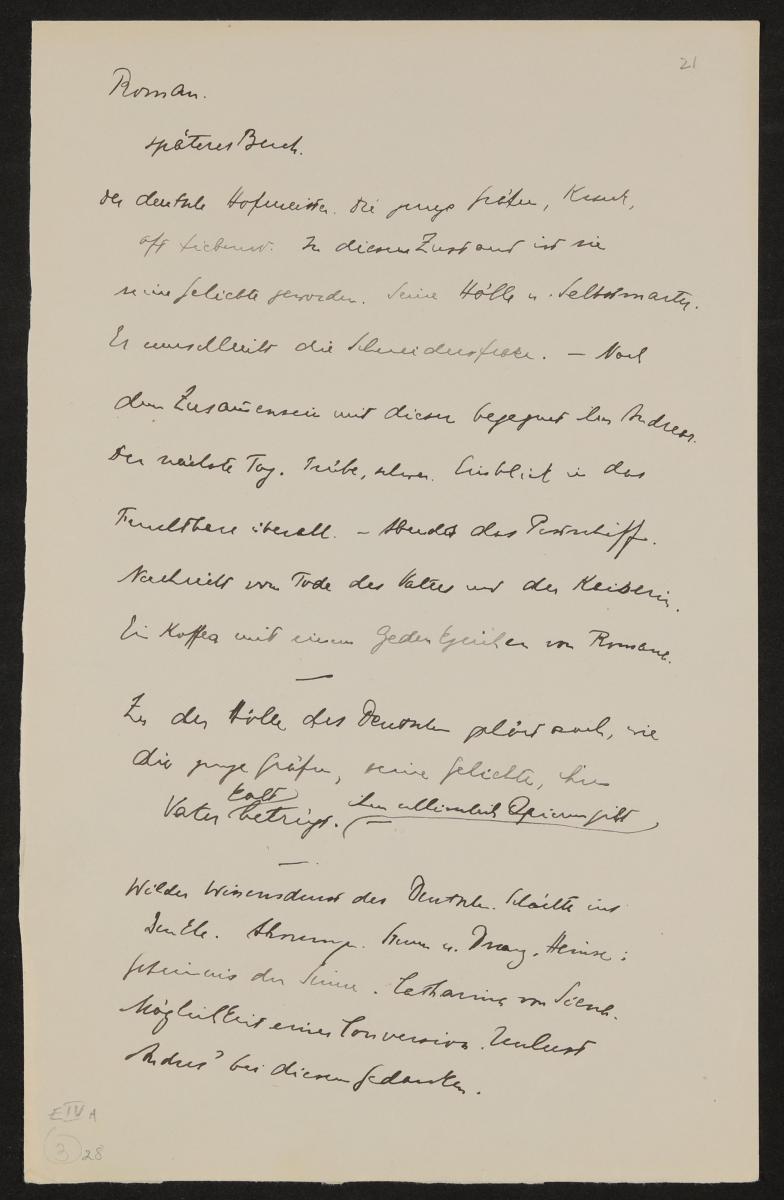 21
Roman.
späteres Buch.
Der deutsche Hofmeister. Die junge Gräfin, krank,
oft fiebernd. In diesem Zustand ist sie
seine Geliebte geworden. Seine Hölle u. Selbstmarter.
Er umschleicht die Schneiders
dem Zusammensein mit dieser begegnet ihm Andreas.
Der nächste Tag. Trübe, schwer. Einblick in das
Furchtbare überall. – Abends das Postschiff.
Nachricht vom Tode des Vaters und der Kaiserin.
Ein Koffer mit einem Gedenkzeichen von Romana.
—
Zu der Hölle des Deutschen gehört auch, wie
die junge Gräfin, seine Geliebte, ihren
kalt ihm allmählich Opium gibt
Vater betrügt. (—
—
Wilder Wissensdurst des Deutschen. Schächte ins
Dunkle. Ahnungen. Sturm u. Drang. Heinse:
Geheimnis der Sinne. Catharina von Siena.
Möglichkeit einer Conversion. Unlust
Andres' bei diesem Gedanken.
E IV A
3 28